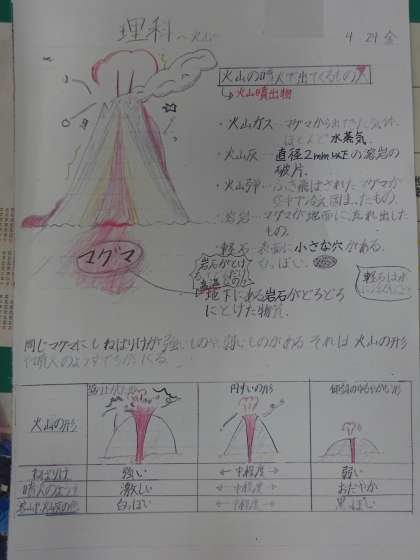 理科 ~火山~
4 24 金
火山の噴火で出てくるもの
→火山噴出物
・火山ガス…マグマから出てきた気体。
ほとんど水蒸気。
・火山灰…直径2mm以下の溶岩の
破片。
・火山弾…ふき飛ばされたマグマが
空中で冷え固まったもの。
・溶岩…マグマが地面に流れ出した
もの。
・軽石…表面に小さな穴がある。
白っぽい。
マグマ
岩石がとけ
高温
地下にある岩石がどろどろ
にとけた物質。
軽石は水
同じマグマにもねばりけが強いものや、弱いものがある それは 火山の形
や噴火のようすでちがってくる。
火山の形
円すいの形
傾斜のゆるやかな形
ねばりけ 強い ← 中程度 → 弱い
噴火のようす 激しい ← 中程度 → おだやか
白っぽい ← 中程度 → 黒っぽい